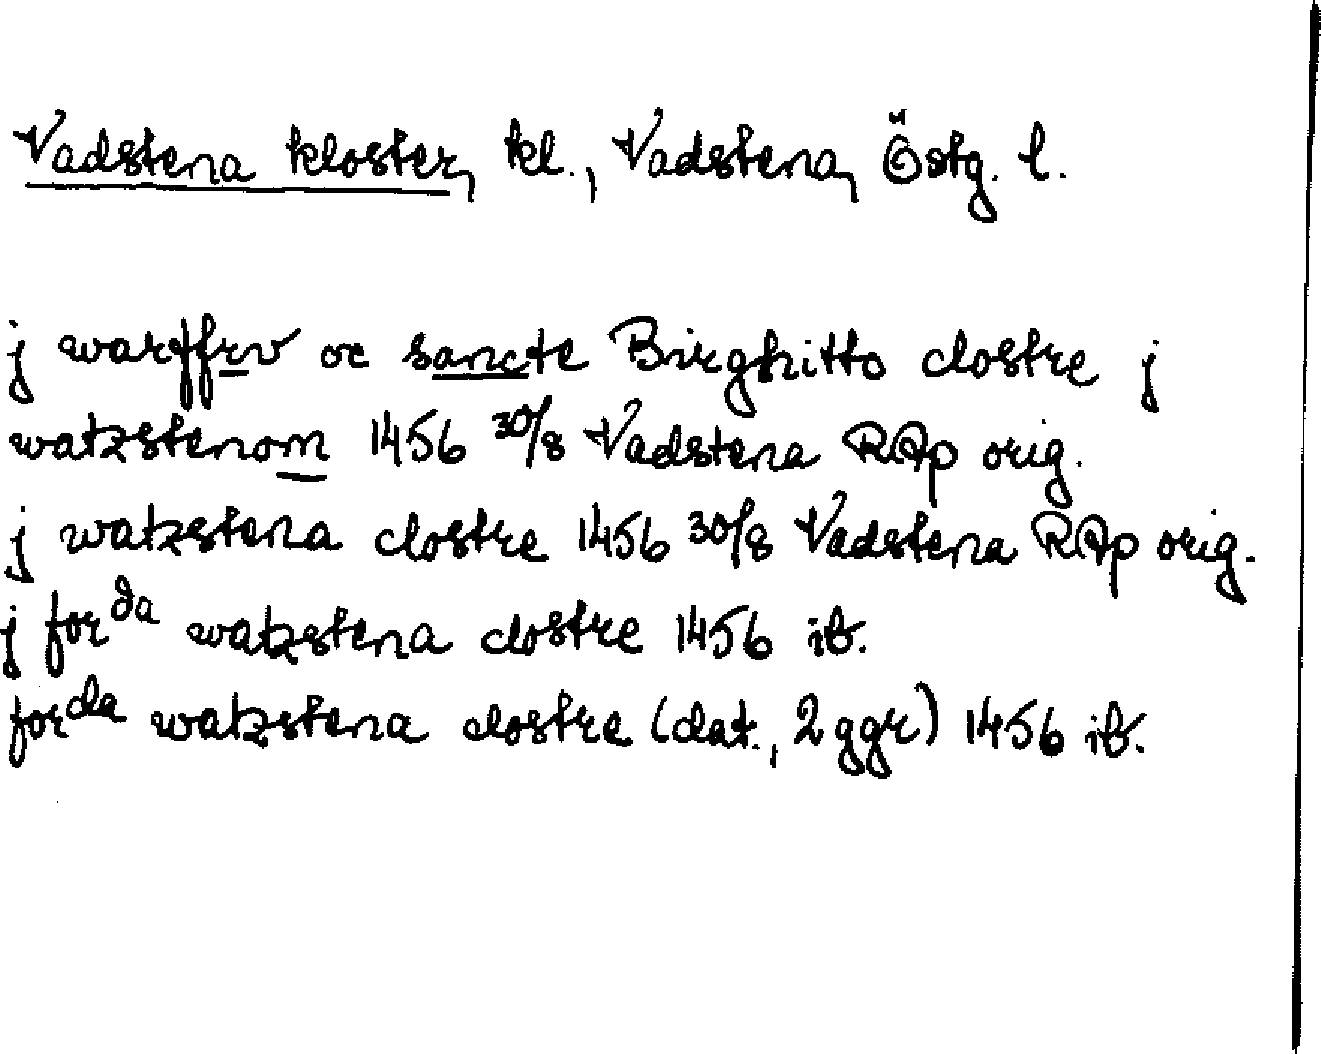 Vadstena kloster, kl., Vadstena, Östg. l.
j warffrv oc sancte Birghitto clostre j
watzstenom 1456 30/8 Vadstena RAp orig.
j watzstena clostre 1456 30/8 Vadstena RAp orig.
j forda watzstena clostre 1456 ib.
forda watzstena clostre (dat., 2 ggr) 1456 ib.